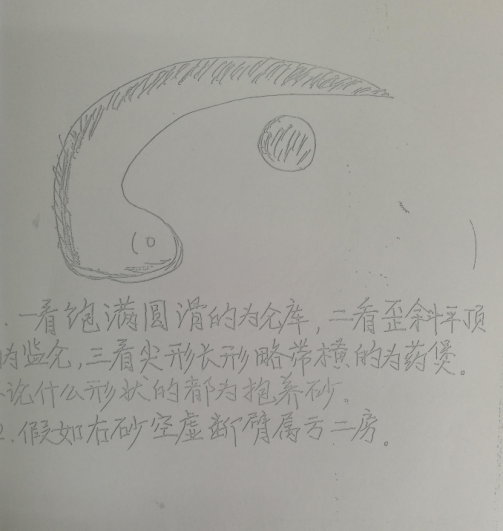 .一看饱满圆滑的为仓库,二看歪斜平顶
为监仓,三看尖形长形略带横的为药煲。
论什么形状的都为抱养砂。
2.假如右砂空虚断臂属亏二房。